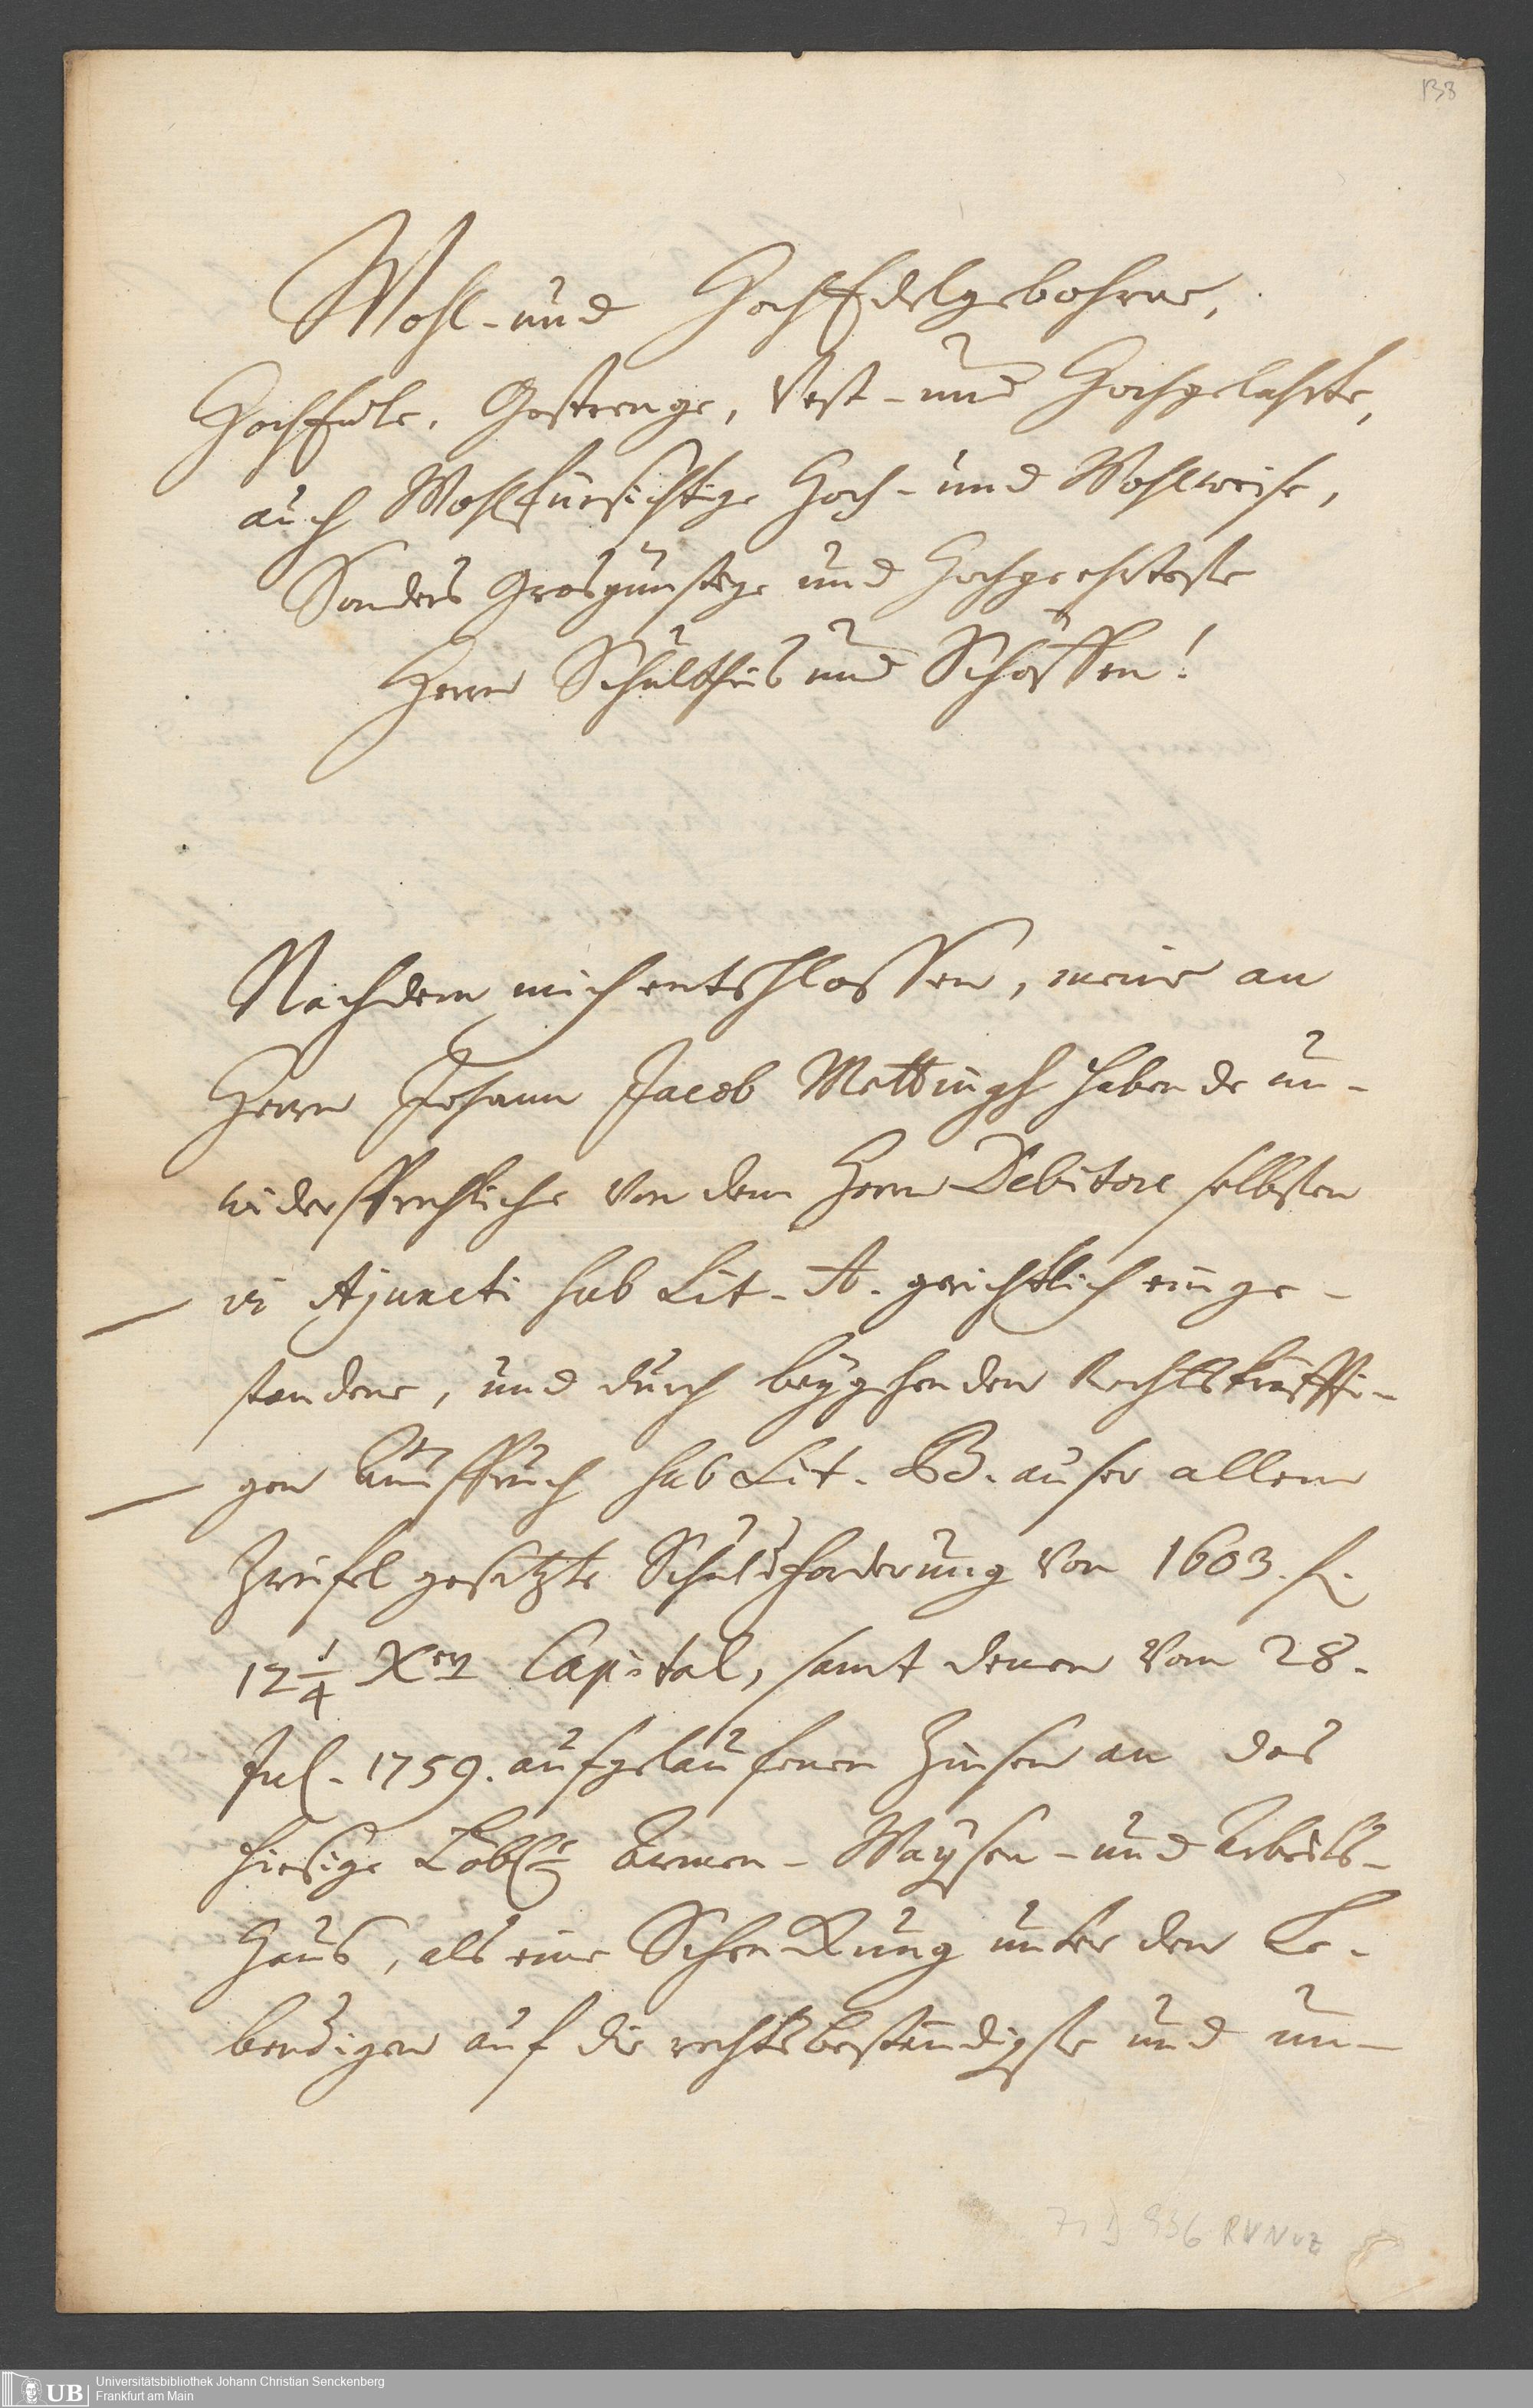 138
Wohl- und HochEdelgebohrne,
HochEdle, Gestrenge, Vest- und Hochgelahrte,
auch Wohlfürsichtige Hoch- und Wohlweise,
Sonders Grosgünstige und Hochgeehrteste
Herrn Schultheis und Schöffen!
Nachdem mich entschlossen, meine an
Herrn Johann Jacob Mettingh habende un-
widersprechliche von dem Herrn Debitore selbsten
vi Ajuncti sub Lit. A. gerichtlich einge-
standene, und durch beygehenden Rechtskräffti-
gen Ausspruch sub Lit. B. auser allem
Zweifel gesetzte Schuldforderung von 1603. f.
12 1/4 Xer Capital, samt denen vom 28.
Jul. 1759. aufgelaufenen Zinsen an das
hiesige Löbl. Armen- Waysen- und Arbeits-
Haus, als eine Schenckung unter den Le-
bendigen auf die rechtsbeständigste und un-
71 D 936
UB
Universitätsbibliothek Johann Christian Senckenberg
Frankfurt am Main